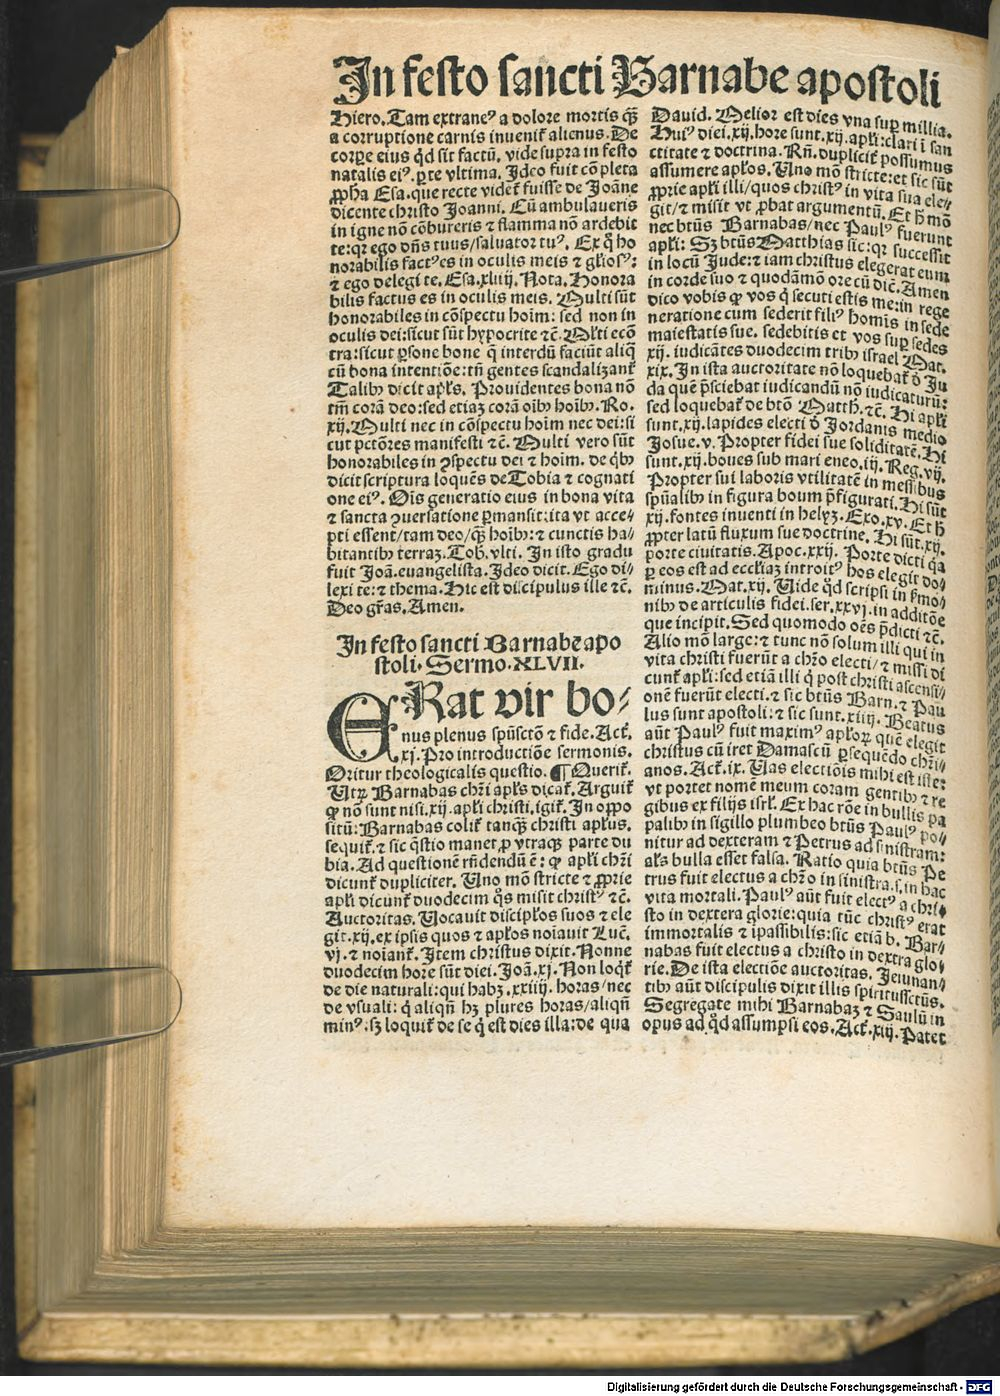 In festo sancti Barnabe apostoli
Hiero. Tam extraneꝰ a dolore mortis qꝫ̃
a corruptione carnis inuenit᷑ alienus. De
corꝑe eius qd̓ sit factũ, vide supra in festo
natalis eiꝰ. ꝑte vltima. Ideo fuit cõpleta
ꝓpha Esa. que recte videt᷑ fuisse de Joãne
dicente christo Joanni. Cũ ambulaueris
in igne nõ cõbureris ⁊ flamma nõ ardebit
te: qꝛ ego dñs tuus/saluator tuꝰ. Ex q̊ ho
norabilis factꝰ es in oculis meis ⁊ glĩosꝰ:
⁊ ego delegi te. Esa. xliiij. Nota. Honora
bilis factus es in oculis meis. Multi sũt
honorabiles in cõspectu hoĩm: sed non in
oculis dei: sicut sũt hypocrite ⁊c̃. Ml̓ti ecõ
tra: sicut ꝑsone bone q̃ interdũ faciũt aliq̃
cũ bona intentiõe: tñ gentes scandalizant᷑
Talibꝰ dicit apl̓s. Prouidentes bona nõ
tm̃ corã deo: sed etiaꝫ corã oĩbꝰ hoĩbꝰ. Ro.
xij. Multi nec in cõspectu hoĩm nec dei: si
cut pctõres manifesti ⁊c̃. Multi vero sũt
honorabiles in ꝯspectu dei ⁊ hoĩm. de qͥbꝰ
dicit scriptura loquẽs de Tobia ⁊ cognati
one eiꝰ. Oĩs generatio eius in bona vita
⁊ sancta ꝯuersatione ꝑmansit: ita vt acce/
pti essent/tam deo/qꝫ̃ hoĩbꝰ: ⁊ cunctis ha/
bitantibꝰ terraꝫ. Tob. vlti. In isto gradu
fuit Joã. euangelista. Ideo dicit. Ego di/
lexi te: ⁊ thema. Hic est discipulus ille ⁊c̃.
Deo gr̃as. Amen.
In festo sancti Barnabe apo
stoli. Sermo. XLVII.
ERat vir bo/
nus plenus spũsctõ ⁊ fide. Act᷑.
xj. Pro introductiõe sermonis.
Oritur theologicalis questio. ¶ Querit᷑.
Vtꝝ Barnabas chr̃i apl̓s dicat᷑. Arguit᷑
ꝙ nõ sunt nisi. xij. apl̓i christi. igit᷑. In oppo
sitũ: Barnabas colit᷑ tanqꝫ̃ christi apl̓us.
sequit᷑. ⁊ sic q̃stio manet ꝓ vtraqꝫ parte du
bia. Ad questionẽ rñdendũ ẽ: ꝙ apl̓i chr̃i
dicunt᷑ dupliciter. Uno mõ stricte ⁊ ꝓprie
apl̓i dicunt᷑ duodecim qͦs misit christꝰ ⁊c̃.
Auctoritas. Vocauit discipl̓os suos ⁊ ele
git. xij. ex ipsis quos ⁊ apl̓os noĩauit Luc̃.
vj. ⁊ noĩant᷑. Item christus dixit. Nonne
duodecim hore sũt diei. Joã. xj. Non loqt᷑
de die naturali: qui habꝫ. xxiiij. horas/nec
de vsuali: q̃ aliqñ hꝫ plures horas/aliqñ
minꝰ: sꝫ loquit᷑ de se q̃ est dies illa: de qua
Dauid. Melior est dies vna suꝑ millia.
Huiꝰ diei. xij. hore sunt. xij. apl̓i: clari ĩ san
ctitate ⁊ doctrina. Rñ. duplicit᷑ possumus
assumere apl̓os. Uno mõ stricte: et sic sũt
ꝓprie apl̓i illi/quos christꝰ in vita sua ele/
git/⁊ misit vt ꝓbat argumentũ. Et h̓ mõ
nec btũs Barnabas/nec Paulꝰ fuerunt
apl̓i: Sꝫ btũs Matthias sic: qꝛ successit
in locũ Jude: ⁊ iam christus elegerat eum
in corde suo ⁊ quodãmõ ore cũ dic̃. Amen
dico vobis ꝙ vos q̃ secuti estis me: in rege
neratione cum sederit filiꝰ homĩs in sede
maiestatis sue. sedebitis et vos suꝑ sedes
xij. iudicãtes duodecim tribꝰ israel Mat.
xix. In ista auctoritate nõ loquebat᷑ d̓ Ju
da quẽ p̃sciebat iudicandũ nõ iudicaturũ:
sed loquebat᷑ de btõ Matth. ⁊c̃. Hi apl̓i
sunt. xij. lapides electi d̓ Jordanis medio
Josue. v. Propter fidei sue soliditatẽ. Hi
sunt. xij. boues sub mari eneo. iij. Reg. vij.
Propter sui laboris vtilitatẽ in messibus
spũalibꝰ in figura boum p̃figurati. Hi sũt
xij. fontes inuenti in helyꝫ. Exo. xv. Et h̓
ꝓpter latũ fluxum sue doctrine. Hi sũt. xij.
porte ciuitatis. Apoc. xxij. Porte dicti q̓a
ꝑ eos est ad eccl̓iaꝫ introitꝰ hos elegit do/
minus. Mat. xij. Vide qd̓ scripsi in ẜmo/
nibꝰ de articulis fidei. ser. xxvj. in additõe
que incipit. Sed quomodo oẽs p̃dicti ⁊c̃.
Alio mõ large: ⁊ tunc nõ solum illi qui in
vita christi fuerũt a chr̃o electi/⁊ missi di
cunt᷑ apl̓i: sed etiã illi q̓ post christi ascensi/
onẽ fuerũt electi. ⁊ sic btũs Barn. ⁊ Pau
lus sunt apostoli: ⁊ sic sunt. xiiij. Beatus
aũt Paulꝰ fuit maximꝰ apl̓oꝝ quẽ elegit
christus cũ iret Damascũ ꝑsequẽdo chr̃i/
anos. Act᷑. ix. Vas electiõis mihi est iste:
vt portet nomẽ meum coram gentibꝰ ⁊ re
gibus ex filijs isrl̓. Ex hac rõe in bullis pa
palibꝰ in sigillo plumbeo btũs Paulꝰ po/
nitur ad dexteram ⁊ Petrus ad sinistram:
al̓s bulla esset falsa. Ratio quia btũs Pe
trus fuit electus a chr̃o in sinistra. s. in hac
vita mortali. Paulꝰ aũt fuit electꝰ a chri/
sto in dextera glorie: quia tũc christꝰ erat
immortalis ⁊ ĩpassibilis: sic etiã b. Bar/
nabas fuit electus a christo in dextra glo/
rie. De ista electiõe auctoritas. Jeiunan/
tibꝰ aũt discipulis dixit illis spiritussctũs.
Segregate mihi Barnabaꝫ ⁊ Saulũ in
opus ad qd̓ assumpsi eos. Act᷑. xiij. Patet
Digitalisierung gefördert durch die Deutsche Forschungsgemeinschaft - DFG